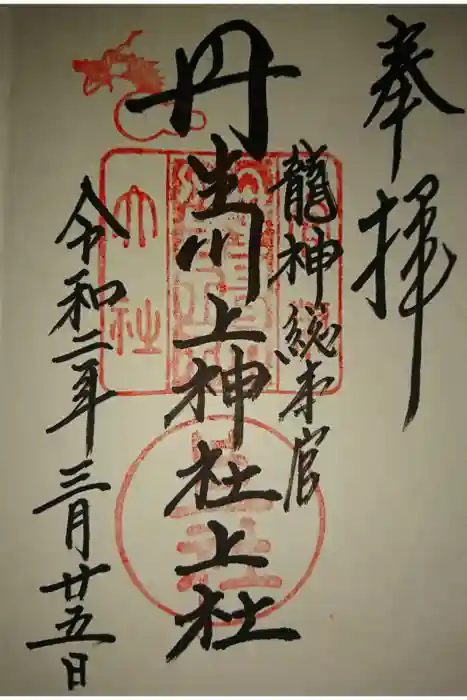 奉拝
龍神総本宮
丹生川上神社上社
令和二年三月廿五日
大社
上社